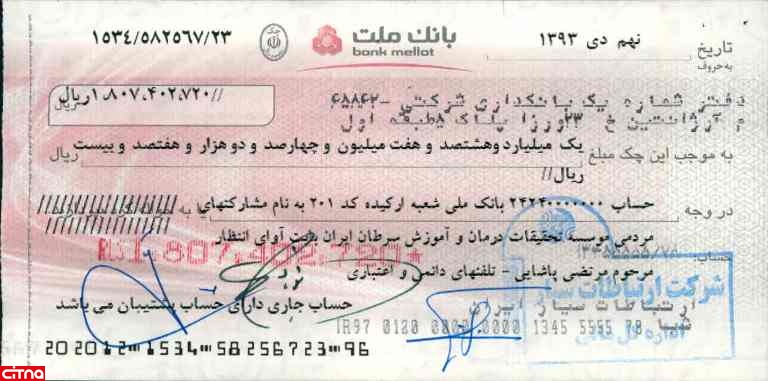 ۱۵۳۴/۵۸۲۵۶۷/۲۳
بانک ملت
bank mellat
تاریخ نهم دی ۱۳۹۳
به حروف
//۱،۸۰۷،۴۰۲،۷۲۰ریال
ریال
دفتر شماره یک بانکداری شرکتی -۶۸۸۴۲
م آرژانتین خ ۲۳ورزا پلاک ۸طبقه اول
به موجب این چک مبلغ یک میلیاردوهشتصد و هفت میلیون و چهارصد و دو هزار و هفتصد و بیست ریال
ریال//
در وجه حساب ۲۴۲۴۰۰۰۰۰۰۰ بانک ملی شعبه ارکیده کد ۲۰۱ به نام مشارکتهای
مردمی موسسه تحقیقات درمان و آموزش سرطان ایران بابت آوای انتظار
RLS1,807,402,720*
حساب:
مرحوم مرتضی پاشایی - تلفنهای دائمی و اعتباری
شرکت ارتباطات سیار
ارتباطات سیار ایران
حساب جاری دارای حساب پشتیبان می باشد
شبا IR97 0120 0000 0000 1345 5555 78
اداره کل مالی
202012 1534 58256723 96
citna